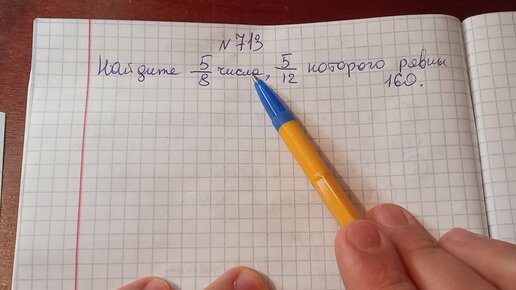 №713
Найдите 5/8 числа, 5/12 которого равны
160.